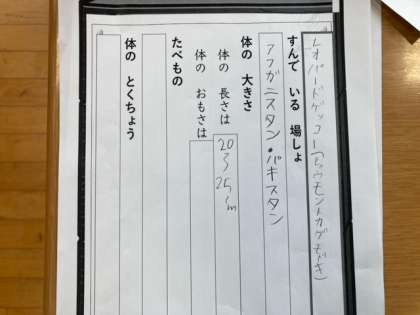 レオパードゲッコー(ヒョウモントカゲモドキ)
すんで いる 場しょ
アフガニスタン・パキスタン
体の 大きさ
体の 長さは 20〜25cm
体の おもさは
たべもの
体の とくちょう